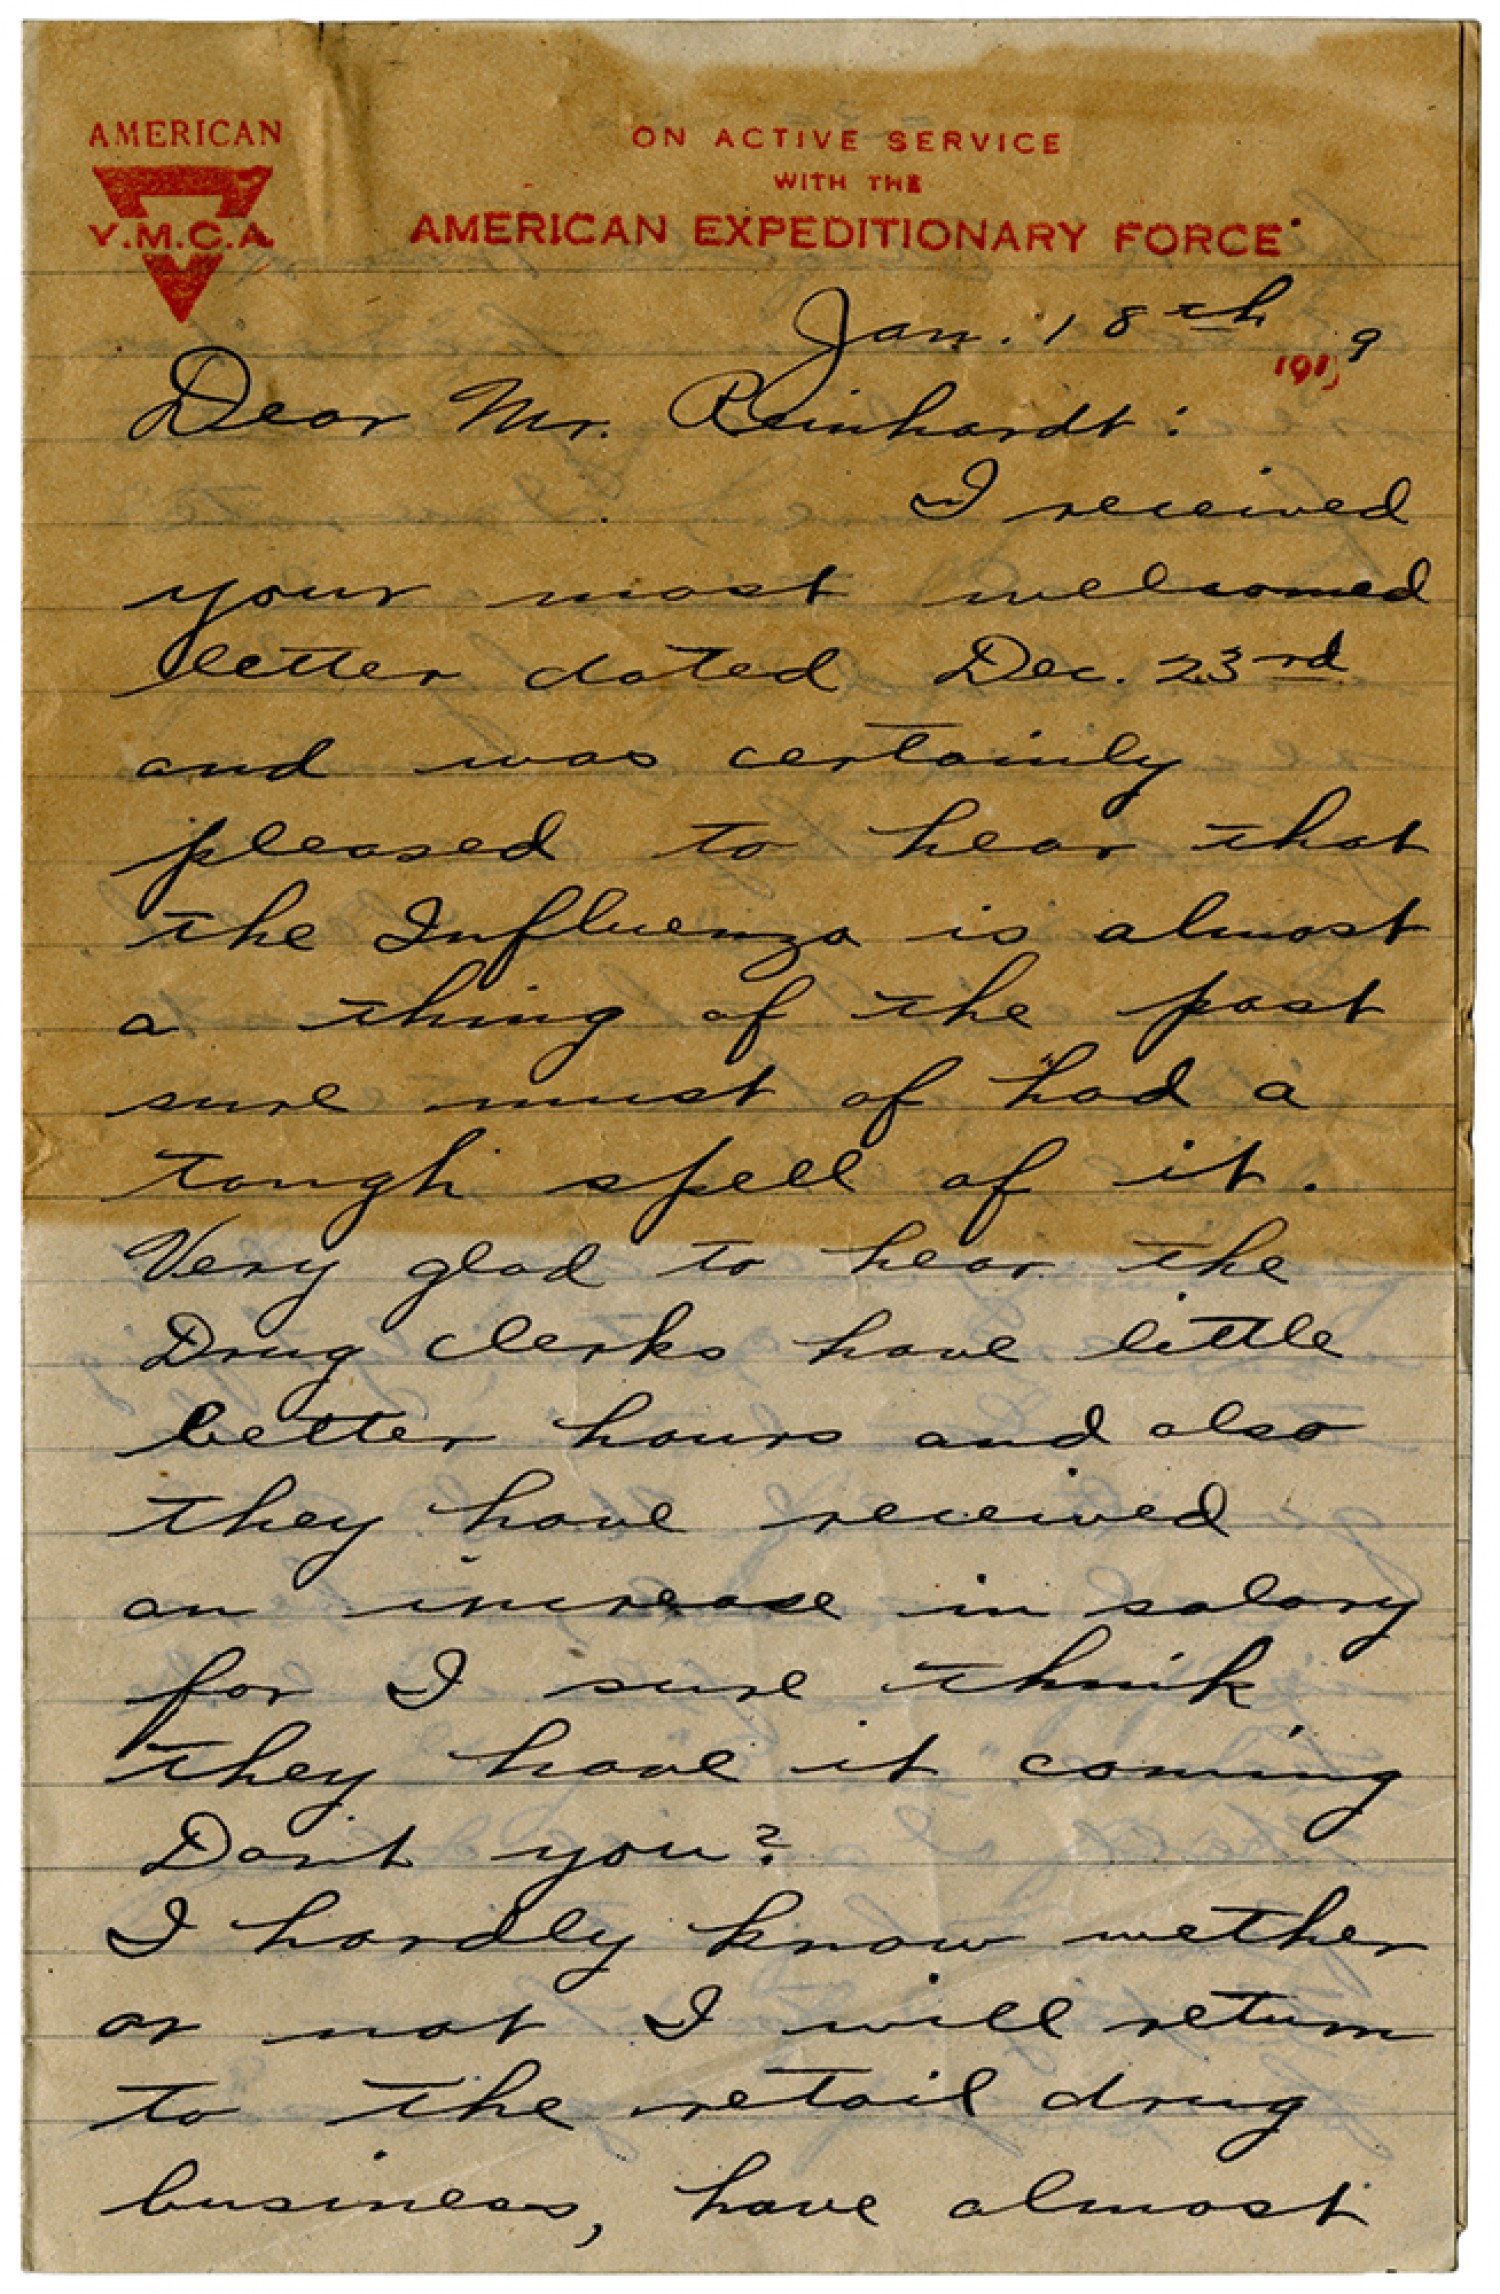 AMERICAN
Y.M.C.A.
ON ACTIVE SERVICE
WITH THE
AMERICAN EXPEDITIONARY FORCE
Jan. 18th 1919
Dear Mr. Reinhardt:
I received
your most welcomed
letter dated Dec. 23rd
and was certainly
pleased to hear that
the Influenza is almost
a thing of the past
sure must of "had a
tough spell of it.
Very glad to hear the
Drug clerks have little
better hours and also
they have received
an increase in salary
for I sure think,
they have it coming
Don't you?
I hardly know wether
or not I will return
to the retail drug
business, have almost